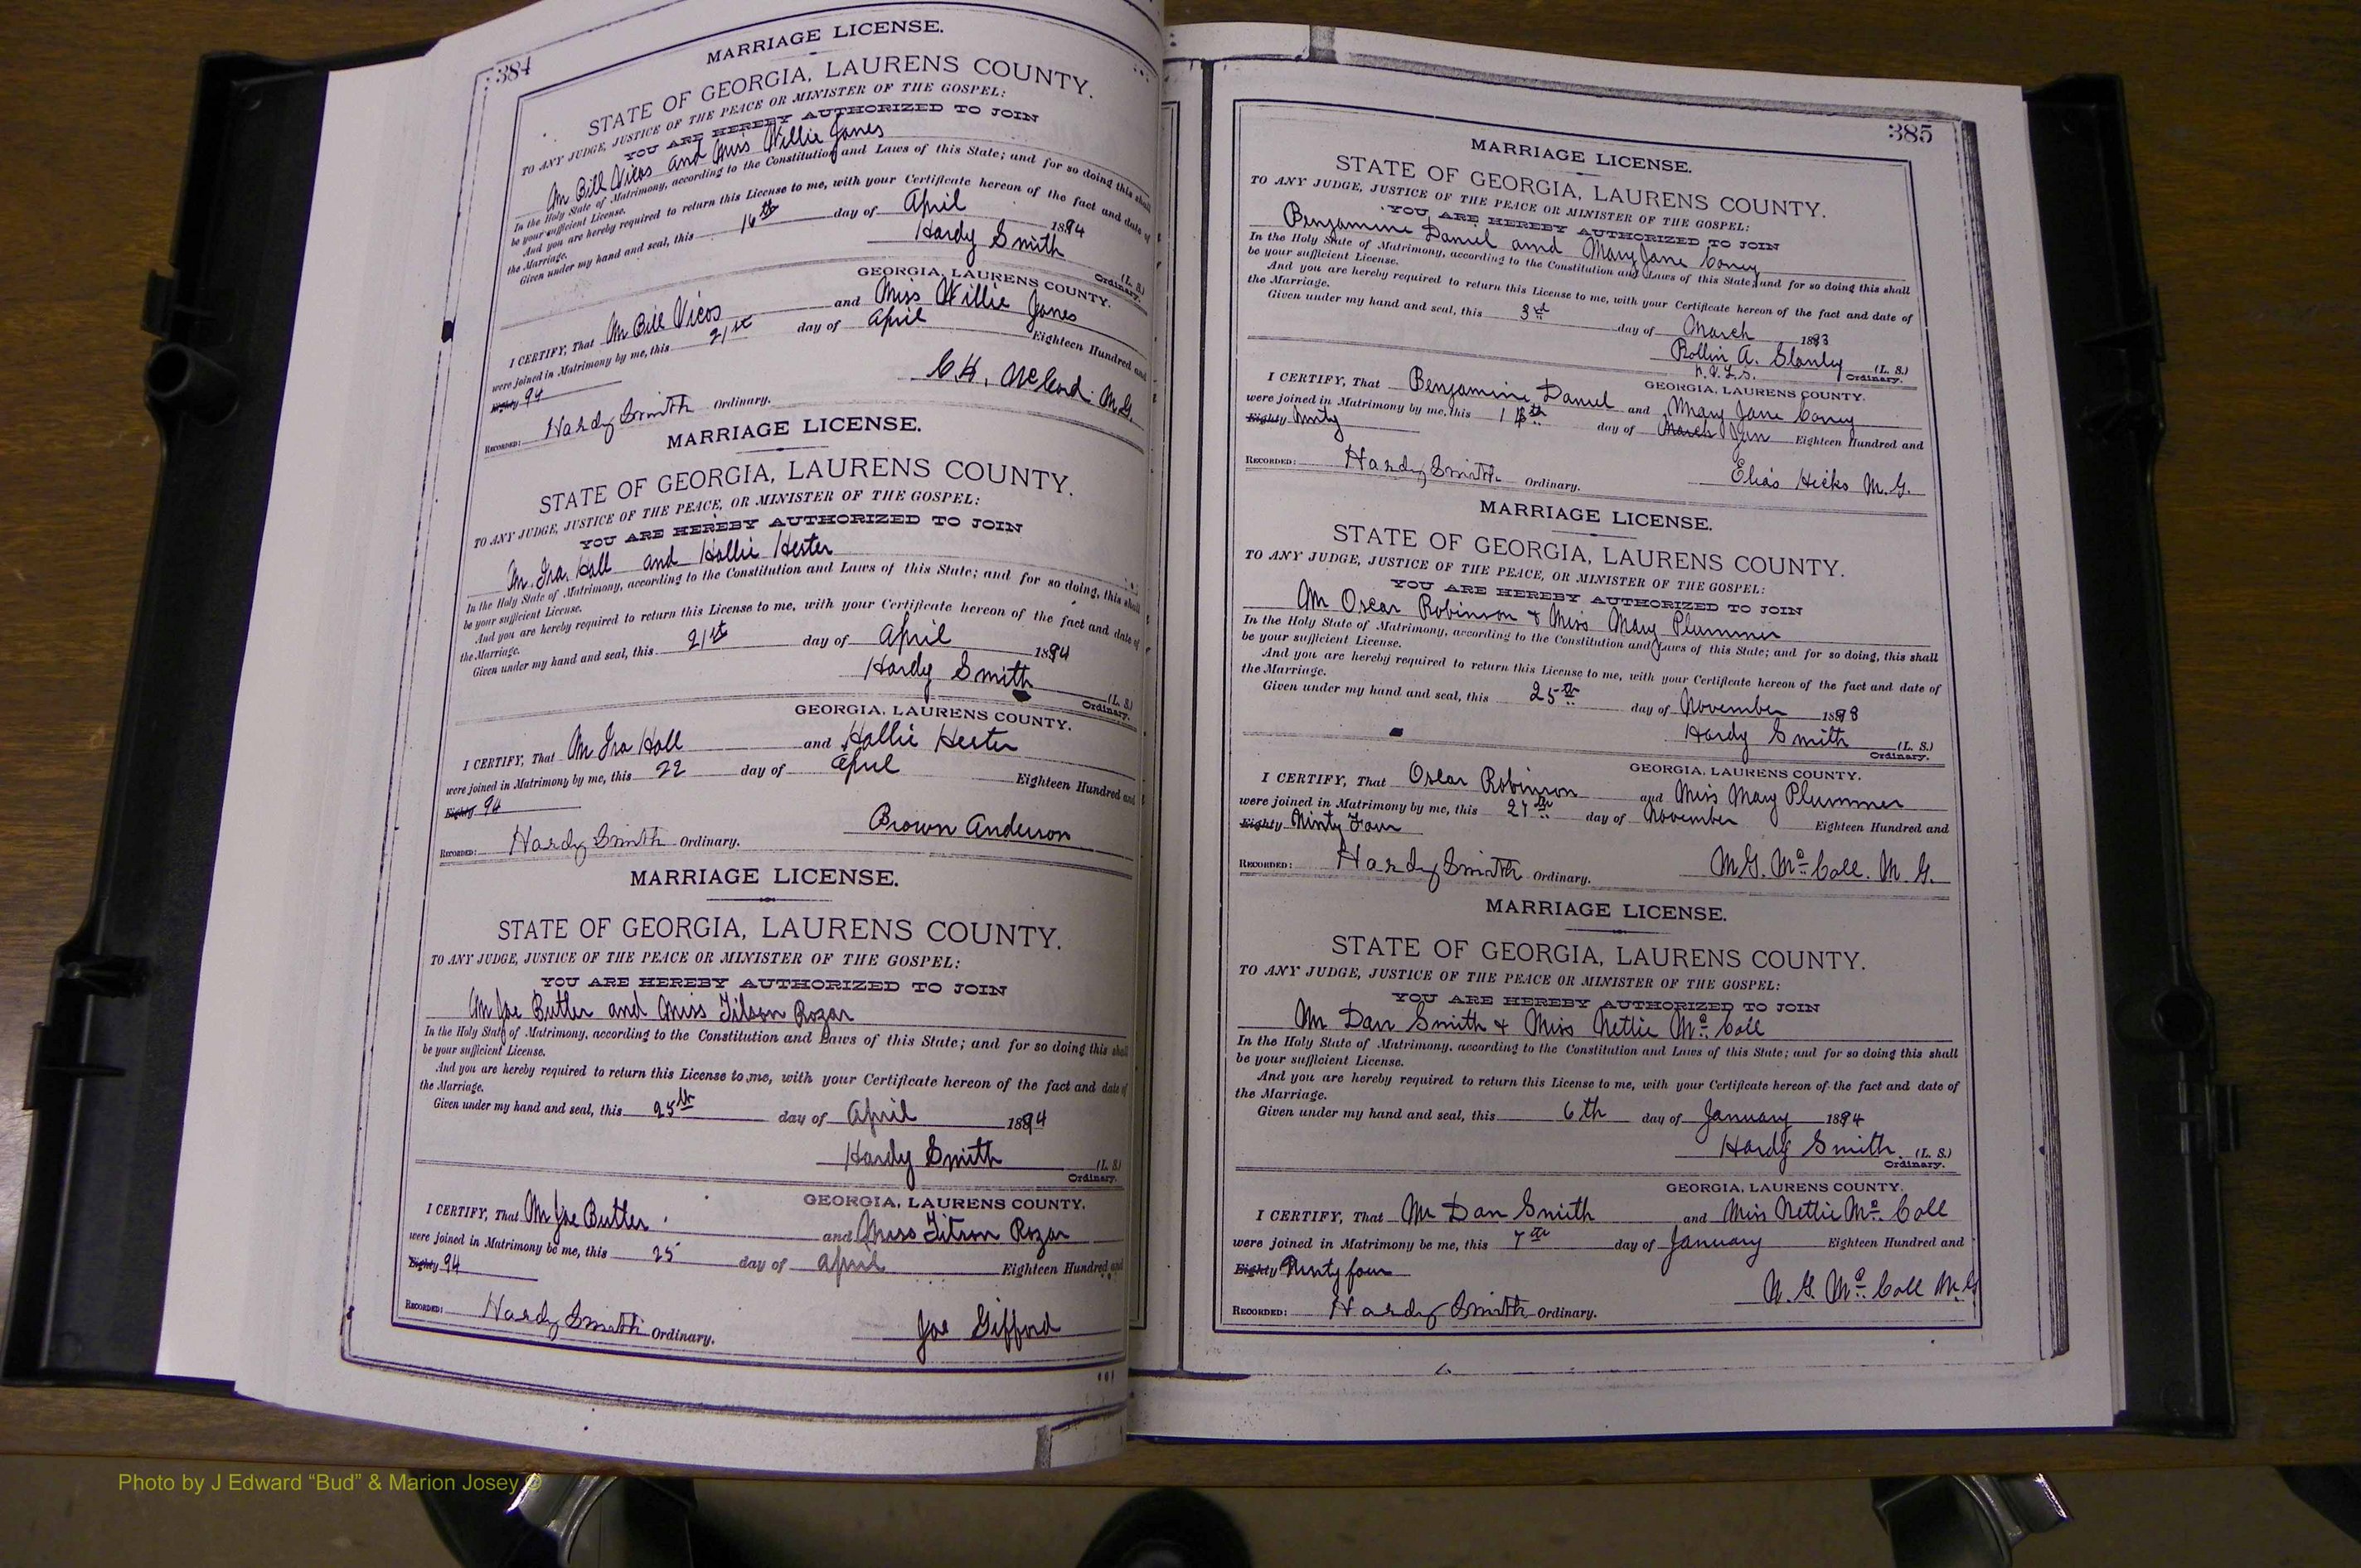 384
MARRIAGE LICENSE.
STATE OF GEORGIA, LAURENS COUNTY.
TO ANY JUDGE, JUSTICE OF THE PEACE OR MINISTER OF THE GOSPEL:
YOU ARE HEREBY AUTHORIZED TO JOIN
Mr Bill Vicos and Miss Willie Jones
In the Holy State of Matrimony, according to the Constitution and Laws of this State; and for so doing this shall
be your sufficient License.
And you are hereby required to return this License to me, with your Certificate hereon of the fact and date of
the Marriage.
Given under my hand and seal, this 16th day of April 1894
Hardy Smith (L. S.)
Ordinary.
GEORGIA, LAURENS COUNTY.
I CERTIFY, That Mr Bill Vicos and Miss Willie Jones
were joined in Matrimony by me, this 21st day of April Eighteen Hundred and
Eighty 94
C.H. McLend. M.G.
RECORDED: Hardy Smith Ordinary.
MARRIAGE LICENSE.
STATE OF GEORGIA, LAURENS COUNTY.
TO ANY JUDGE, JUSTICE OF THE PEACE, OR MINISTER OF THE GOSPEL:
YOU ARE HEREBY AUTHORIZED TO JOIN
Mr. Ira Hall and Hollie Hester
In the Holy State of Matrimony, according to the Constitution and Laws of this State; and for so doing, this shall
be your sufficient License.
And you are hereby required to return this License to me, with your Certificate hereon of the fact and date of
the Marriage.
Given under my hand and seal, this 21st day of April 1894
Hardy Smith (L. S.)
Ordinary.
GEORGIA, LAURENS COUNTY.
I CERTIFY, That Mr Ira Hall and Hollie Hester
were joined in Matrimony by me, this 22 day of April Eighteen Hundred and
Eighty 94
Brown Anderson
RECORDED: Hardy Smith Ordinary.
MARRIAGE LICENSE.
STATE OF GEORGIA, LAURENS COUNTY.
TO ANY JUDGE, JUSTICE OF THE PEACE OR MINISTER OF THE GOSPEL:
YOU ARE HEREBY AUTHORIZED TO JOIN
Mr Joe Butler and Miss Tilson Rozar
In the Holy State of Matrimony, according to the Constitution and Laws of this State; and for so doing this shall
be your sufficient License.
And you are hereby required to return this License to me, with your Certificate hereon of the fact and date of
the Marriage.
Given under my hand and seal, this 25th day of April 1894
Hardy Smith (L. S.)
Ordinary.
GEORGIA, LAURENS COUNTY.
I CERTIFY, That Mr Joe Butler and Miss Tilson Rozar
were joined in Matrimony be me, this 25 day of April Eighteen Hundred and
Eighty 94
RECORDED: Hardy Smith Ordinary.
Joe Gifford
385
MARRIAGE LICENSE.
STATE OF GEORGIA, LAURENS COUNTY.
TO ANY JUDGE, JUSTICE OF THE PEACE OR MINISTER OF THE GOSPEL:
YOU ARE HEREBY AUTHORIZED TO JOIN
Benjamine Daniel and Mary Jane Coney
In the Holy State of Matrimony, according to the Constitution and Laws of this State; and for so doing this shall
be your sufficient License.
And you are hereby required to return this License to me, with your Certificate hereon of the fact and date of
the Marriage.
Given under my hand and seal, this 3rd day of March 1883
Rollin A. Stanley (L. S.)
Ordinary.
GEORGIA, LAURENS COUNTY.
I CERTIFY, That Benjamine Daniel and Mary Jane Coney
were joined in Matrimony by me, this day of March Jan Eighteen Hundred and
Eighty Ninty
Elias Hicks M. G.
RECORDED: Hardy Smith Ordinary.
MARRIAGE LICENSE.
STATE OF GEORGIA, LAURENS COUNTY.
TO ANY JUDGE, JUSTICE OF THE PEACE, OR MINISTER OF THE GOSPEL:
YOU ARE HEREBY AUTHORIZED TO JOIN
Mr Oscar Robinson & Miss Mary Plummer
In the Holy State of Matrimony, according to the Constitution and Laws of this State; and for so doing, this shall
be your sufficient License.
And you are hereby required to return this License to me, with your Certificate hereon of the fact and date of
the Marriage.
Given under my hand and seal, this 25th day of November 1893
Hardy Smith (L. S.)
Ordinary.
GEORGIA, LAURENS COUNTY.
I CERTIFY, That Oscar Robinson and Miss Mary Plummer
were joined in Matrimony by me, this 27th day of November Eighteen Hundred and
Eighty Ninty Four
RECORDED: Hardy Smith Ordinary.
M.G. McCall. M. G.
MARRIAGE LICENSE.
STATE OF GEORGIA, LAURENS COUNTY.
TO ANY JUDGE, JUSTICE OF THE PEACE OR MINISTER OF THE GOSPEL:
YOU ARE HEREBY AUTHORIZED TO JOIN
Mr Dan Smith & Miss Nettie McCall
In the Holy State of Matrimony, according to the Constitution and Laws of this State; and for so doing this shall
be your sufficient License.
And you are hereby required to return this License to me, with your Certificate hereon of the fact and date of
the Marriage.
Given under my hand and seal, this 6th day of January 1894
Hardy Smith. (L. S.)
Ordinary.
GEORGIA, LAURENS COUNTY.
I CERTIFY, That Mr Dan Smith and Miss Nettie McCall
were joined in Matrimony be me, this 7th day of January Eighteen Hundred and
Eighty Ninty four
N. G. McCall M.G
RECORDED: Hardy Smith Ordinary.
Photo by J Edward “Bud” & Marion Josey ©